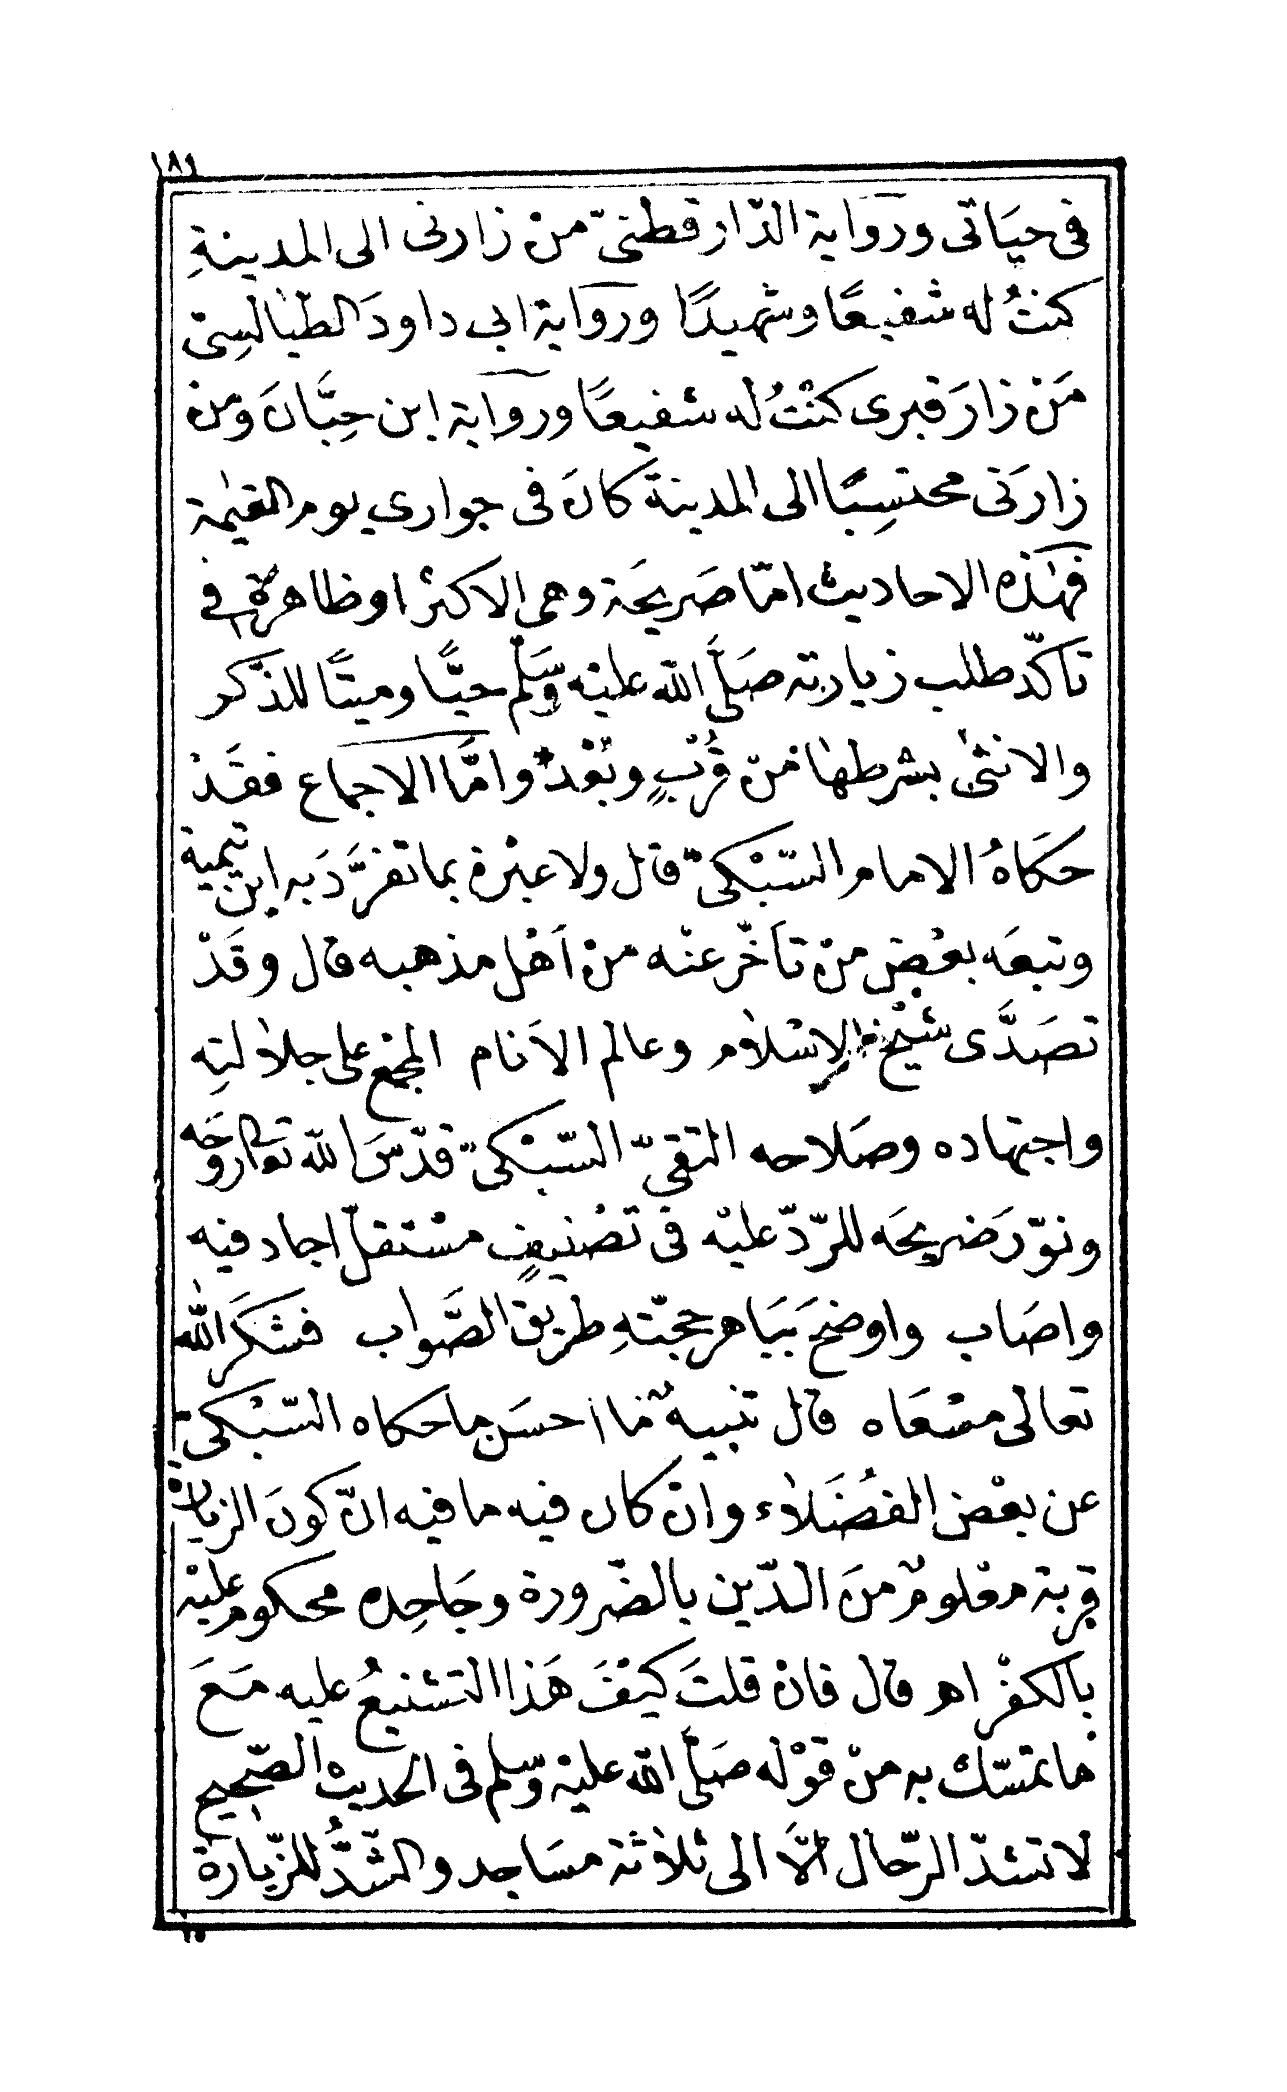 ١٨٩
فى حيَاتى ورواية الدّارقطنىّ منْ زارنى الى المدينةِ
كنتُ له شفيعًا وشهيدًا ورواية ابى داودَ الطّيٰالسِىّ
مَنْ زارَ قبرى كنْتُ له شفيعًا ورواية ابن حِبَّانَ ومن
زارنى محتسِبًا الى المدينة كانَ فى جوارى يوم القيٰمة
فهٰذه الاحاديث امّا صَريحَة وهى الاكثرُ او ظاهرة فى
تاكّد طلب زيارته صَلَّى الله عليْه وَسَلّم حيًّا وميتًا للذّكر
والانثىٰ بشرطهٰا منْ قُرْبٍ وبُعْد* وامَّا الاجماع فقَدْ
حكَاهُ الامام السّبْكىّ قال ولا عبْرة بما تفرَّدَ به ابن تيمية
وتبعَه بعْض منْ تاَخّر عنْه منْ اَهْل مذهبه قال وقَدْ
تصَدَّى شيْخ الاِسْلام وعالم الاَنام المجْمع على جلالتِه
واجتهاده وصَلاحه التقىّ السّبْكىّ قدّسَ الله تعالى روحَه
ونوّرَ ضريحَه للرّدّ عليْه فى تصْنيفٍ مسْتقلّ اجاد فيه
واصَاب واوضحَ ببَاهر حجّتهِ طريق الصَّواب فشكَرَ الله
تعالى مسْعَاه قال تنبيهٌ ما احسَن ما حكاه السّبْكىّ
عن بعْض الفضَلاء وانْ كان فيه ما فيه انّ كونَ الزيارة
قربة معْلومٌ منَ الدّين بالضّرورة وجَاحِده محكوم عليْه
بالكفْر اهـ قال فانْ قلتَ كيْفَ هَذا التشنيعُ عليه مَعَ
ما تمسّك به منْ قوْله صَلَّى الله عليْه وسّلم فى الحديث الصّحيح
لا تشدّ الرّحال الَّا الى ثلاثة مسَاجد والشّدُّ للزّيارة